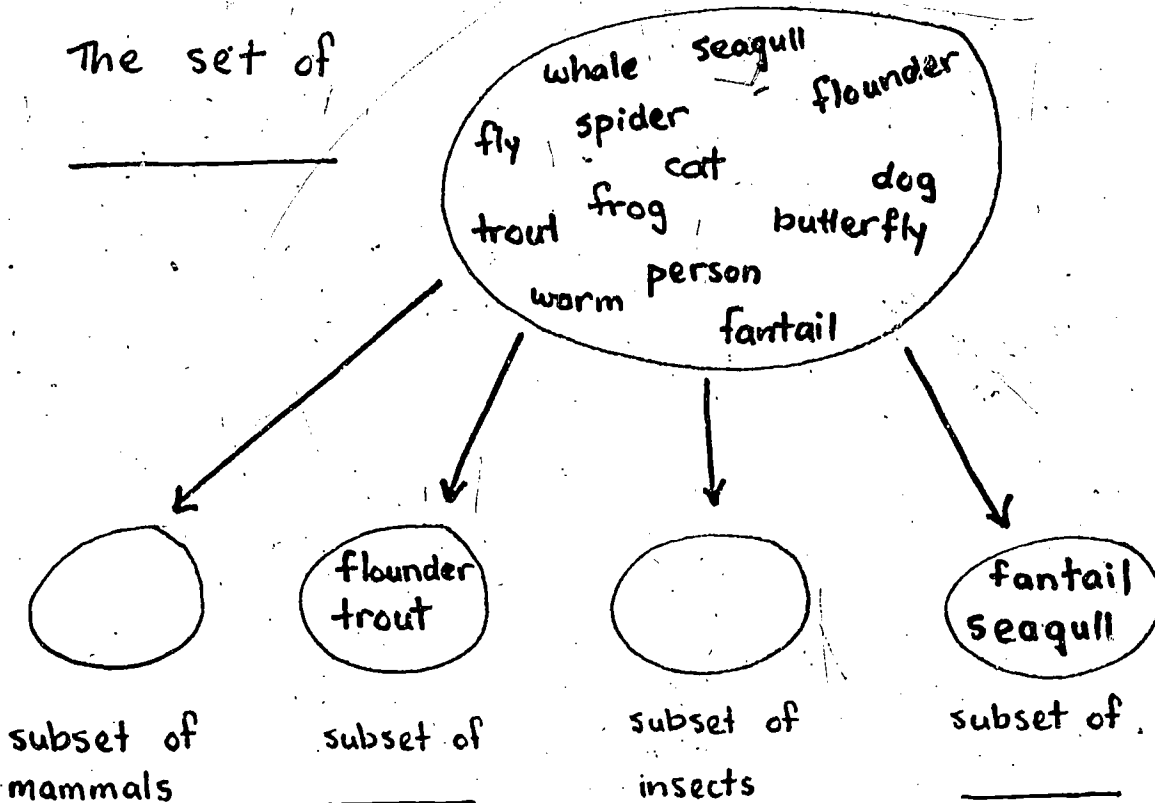 The set of
whale seagull
flounder
fly spider
cat
dog
frog
trout butterfly
person
worm
fantail
flounder
trout
fantail
seagull
subset of
mammals
subset of
subset of
insects
subset of